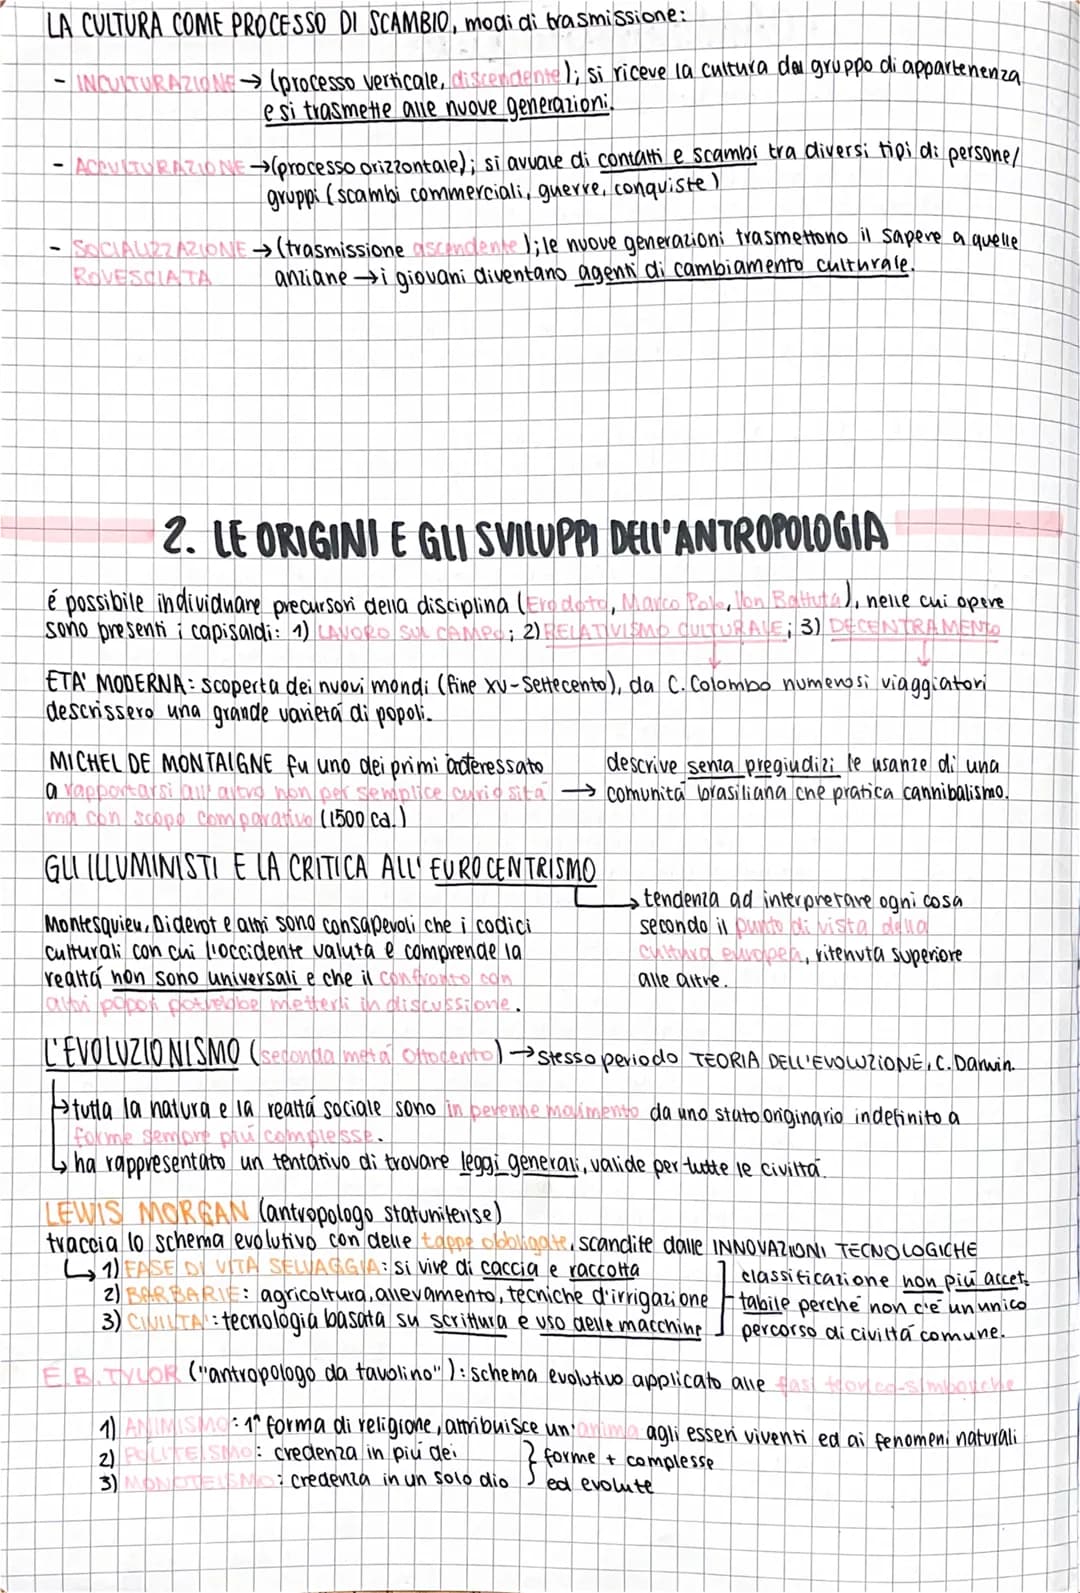 LA CULTURA COME PROCESSO DI SCAMBIO, modi di trasmissione:
- INCULTURAZIONE → (processo verticale, discendente); si riceve la cultura dal gruppo di appartenenza
e si trasmette alle nuove generazioni.
- ACCULTURAZIONE → (processo orizzontale); si avvale di contatti e scambi tra diversi tipi di persone/
gruppi (scambi commerciali, guerre, conquiste)
- SOCIALIZZAZIONE → (trasmissione ascendente); le nuove generazioni trasmettono il sapere a quelle
ROVESCIATA anziane → i giovani diventano agenti di cambiamento culturale.
2. LE ORIGINI E GLI SVILUPPI DELL'ANTROPOLOGIA
é possibile individuare precursori della disciplina (Erodoto, Marco Polo, Ibn Battuta), nelle cui opere
sono presenti i capisaldi: 1) LAVORO SUL CAMPO; 2) RELATIVISMO CULTURALE; 3) DECENTRAMENTO
ETA' MODERNA: scoperta dei nuovi mondi (fine XV-Settecento), da C. Colombo numerosi viaggiatori
descrissero una grande varietá di popoli.
MICHEL DE MONTAIGNE fu uno dei primi interessato
a rapportarsi all'altro non per semplice curiositá →
ma con scopo comparativo (1500 ca.)
descrive senza pregiudizi le usanze di una
comunitá brasiliana che pratica cannibalismo.
GLI ILLUMINISTI E LA CRITICA ALL'EUROCENTRISMO
Montesquieu, Diderot e altri sono consapevoli che i codici
culturali con cui l'occidente valuta e comprende la
realtá non sono universali e che il confronto con
altri popoli potrebbe metterli in discussione.
→ tendenza ad interpretare ogni cosa
secondo il punto di vista della
cultura europea, ritenuta superiore
alle altre.
L'EVOLUZIONISMO (seconda metá Ottocento) → stesso periodo TEORIA DELL'EVOLUZIONE, C. Darwin.
→ tutta la natura e la realtá sociale sono in perenne movimento da uno stato originario indefinito a
forme sempre piú complesse.
↳ ha rappresentato un tentativo di trovare leggi generali, valide per tutte le civiltá.
LEWIS MORGAN (antropologo statunitense)
traccia lo schema evolutivo con delle tappe obbligate, scandite dalle INNOVAZIONI TECNOLOGICHE
↳ 1) FASE DI VITA SELVAGGIA: si vive di caccia e raccolta
2) BARBARIE: agricoltura, allevamento, tecniche d'irrigazione
3) CIVILTA': tecnologia basata su scrittura e uso delle macchine
classificazione non piú accet-
tabile perché non c'é un unico
percorso di civiltá comune.
E.B. TYLOR ("antropologo da tavolino"): schema evolutivo applicato alle fasi teorico-simboliche
1) ANIMISMO: 1ª forma di religione, attribuisce un'anima agli esseri viventi ed ai fenomeni naturali
2) POLITEISMO: credenza in piú dei
3) MONOTEISMO: credenza in un solo dio
} forme + complesse
ed evolute